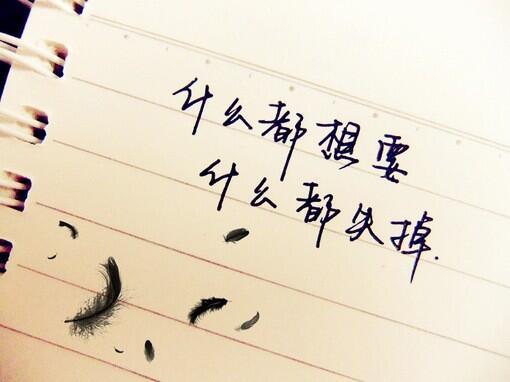 什么都想要
什么都失掉.